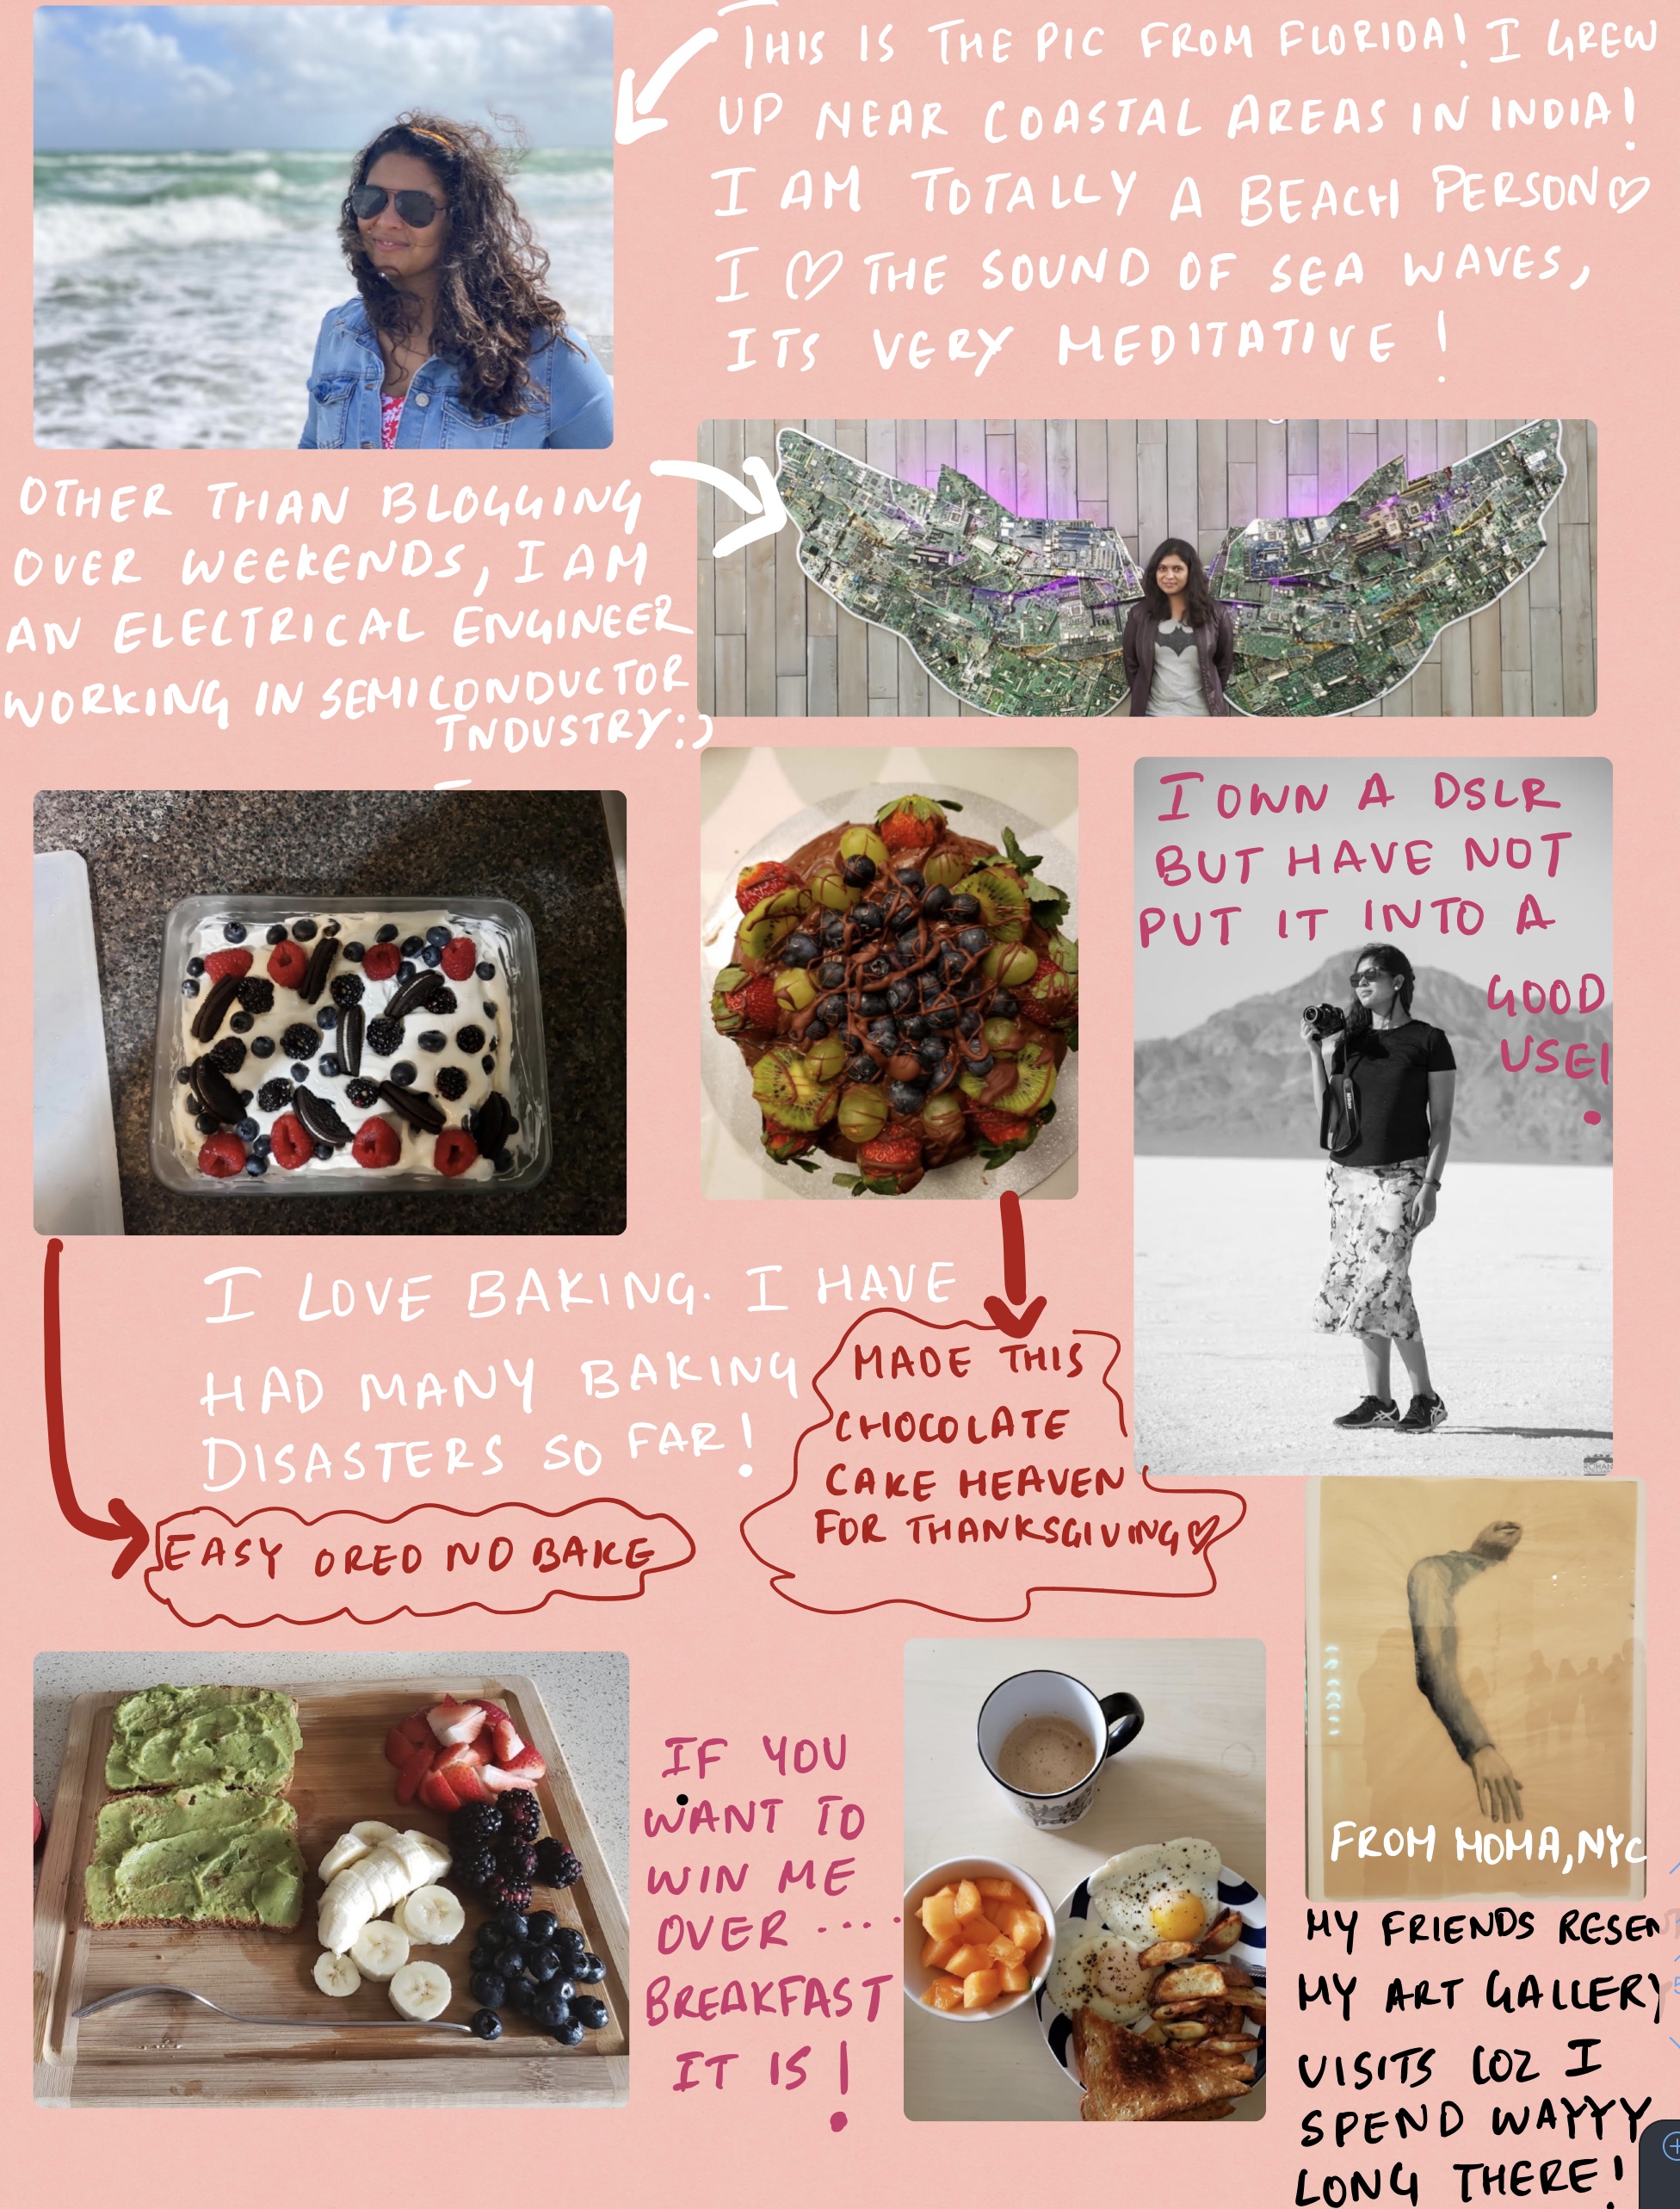 THIS IS THE PIC FROM FLORIDA! I GREW
UP NEAR COASTAL AREAS IN INDIA!
I AM TOTALLY A BEACH PERSON♡
I ♡ THE SOUND OF SEA WAVES,
ITS VERY MEDITATIVE !
OTHER THAN BLOGGING
OVER WEEKENDS, I AM
AN ELECTRICAL ENGINEER
WORKING IN SEMICONDUCTOR
INDUSTRY:)
I OWN A DSLR
BUT HAVE NOT
PUT IT INTO A
GOOD
USE!
Nikon
ROHAN
I LOVE BAKING. I HAVE
HAD MANY BAKING
DISASTERS SO FAR!
MADE THIS
CHOCOLATE
CAKE HEAVEN
FOR THANKSGIVING♡
EASY OREO NO BAKE
IF YOU
WANT TO
WIN ME
OVER ....
BREAKFAST
IT IS !
FROM MOMA, NYC
MY FRIENDS RESEN
MY ART GALLERY
VISITS COZ I
SPEND WAYYY
LONG THERE!